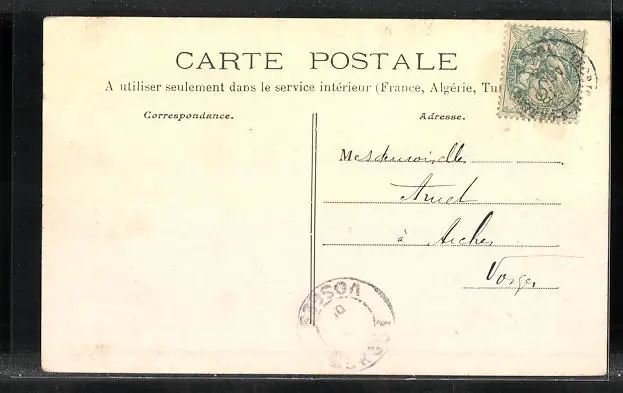 CARTE POSTALE
A utiliser seulement dans le service intérieur (France, Algérie, Tu
Correspondance. Adresse.
Mesdemoiselle
à Arches
Vosges
VOSGES